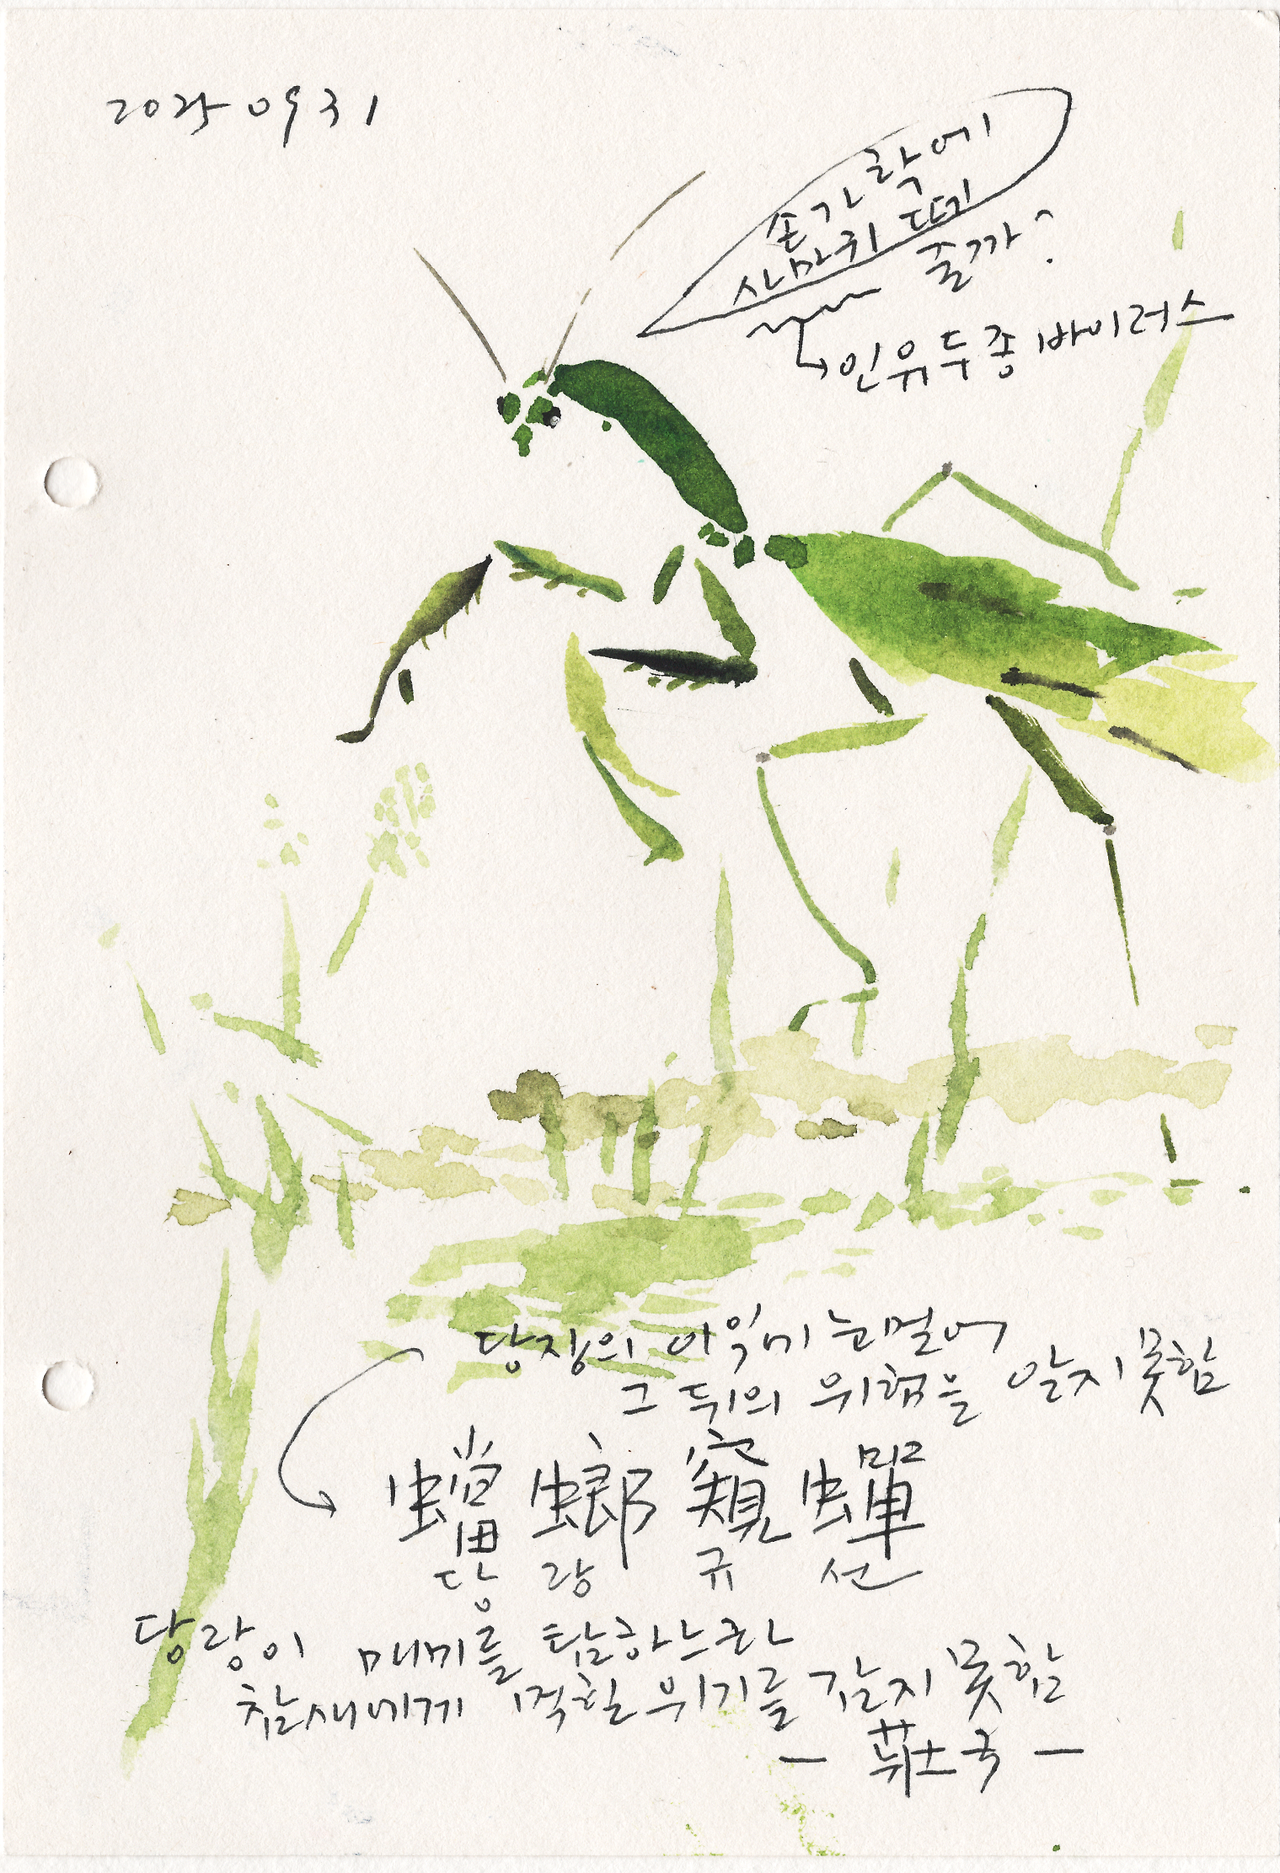 2025 09 31
손가락에
사마귀 떼
줄까?
인유두종 바이러스
당장의 이익에 눈멀어
그 뒤의 위험을 알지 못함
螳螂窺蟬
당 랑 규 선
당랑이 매미를 탐하느라
참새에게 먹힐 위기를 감지 못함
— 莊子 —